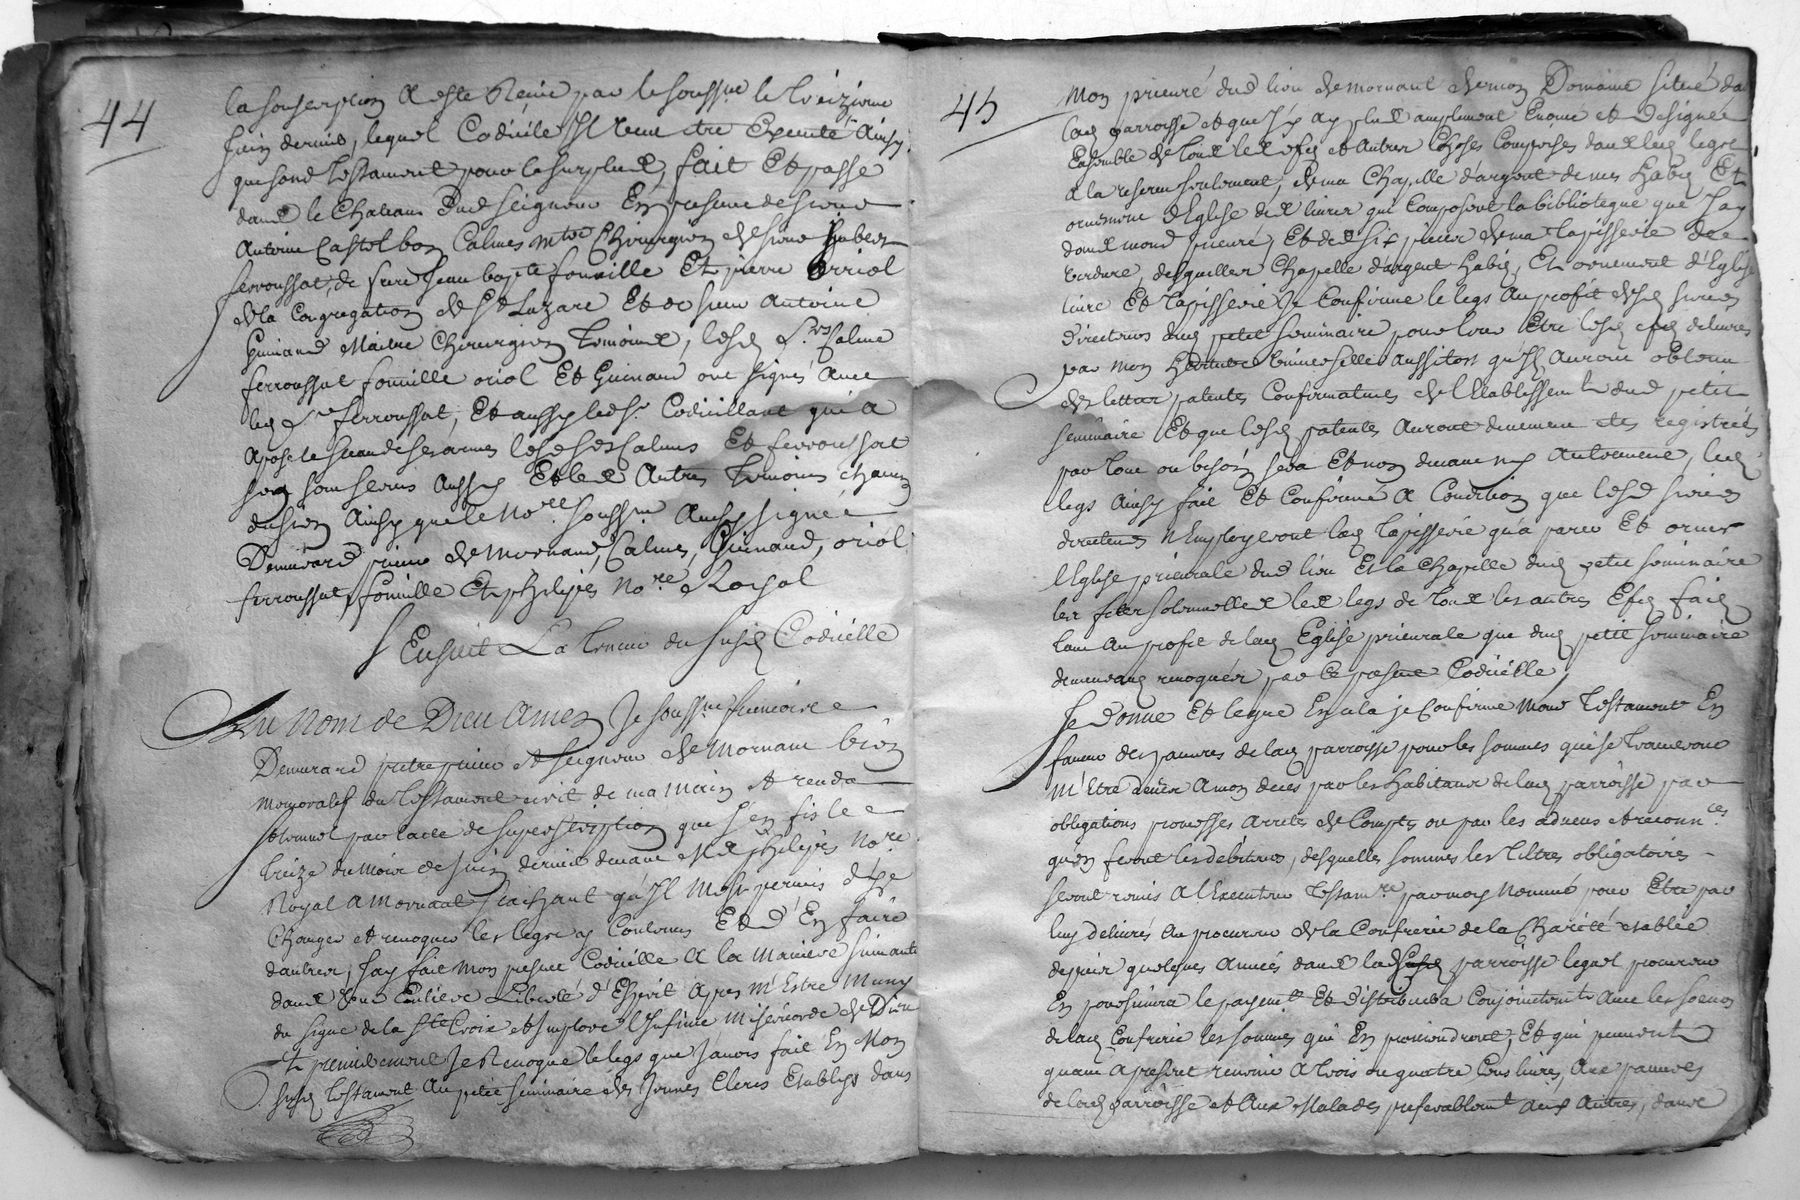 44
la souscription a este Reçue par le souss.ne le treizieme
Juin dernier, lequel Codicile Il veut etre Executé Ainsy
que sond Testament pour le surplus, fait Et passé
dans le Chateau Dud seigneur En presence de sieur
Antoine Castelbon Calmes mtre Chirurgien de sieur Hubert
ferroussat, de frere Jean bapte fonville Et pierre orriol
de la Congregation de St Lazare Et de sieur Antoine
Guinand Maitre Chirurgien Temoins, lesd Srs Calme
ferroussat fonville oriol Et Guinand ont signés Avec
led Sr ferroussat, Et aussy led Sr Codicillant qui a
Aposé le sceau de ses armes lesd srs Calmes Et ferroussat
Et les Autres Temoins chacun
du sien Ainsy que le Nore souss.ne Ainsy signé
Demurard prieur de Mornand, Calmes, Guinand, oriol
ferroussat, fonville Et philipes Nore Royal
S'Ensuit La Teneur du susd Codicille
Au Nom de Dieu Amen Je souss.ne
Demurard pretre prieur et seigneur de Mornant bien
memoratif du Testament ecrit de ma main et rendu
solennel par l'acte de superscription que j'en fis le
treize du mois de Juin dernier devant Me philipes Nore
Royal a Mornant scachant qu'Il m'est permis d'y
Changer et revoquer les legs y Contenus Et d'En faire
d'autres, J'ay fait mon present Codicille A la Maniere suivante
dans une Entiere Liberté d'Esprit Apres m'Estre Muny
du signe de la Ste Croix et Imploré l'Infinie Misericorde de Dieu
Et premierement Je Revoque le legs que J'avois fait En Mon
susd Testament Au petit seminaire des Jeunes Clercs Etablys dans
45
Mon prieuré dud lieu de mornant de mon Domaine situé dans
lad parroisse et que J'y ay plus amplement Enoncé et Designé
Ensemble de tous les Efets et Autres Choses Comprises dans led legs
A la reserve seulement, de ma Chapelle d'argent de mes Habits Et
ornement d'Eglise des livres qui Composent la biblioteque que J'ay
dans mond prieuré, Et des six pieces de ma Tapisserie de
verdure, desquelles Chapelle d'argent habits, Et ornement d'Eglise
livre Et Tapisserie Je Confirme le legs Au profit desd sieurs
directeurs dud petit seminaire pour leur Etre lesd efets delivrés
par mon Heritiere Universelle Aussitost qu'Ils Auront obtenu
des lettres patentes Confirmatives de l'Etablissemt dud petit
seminaire Et que lesd patentes Auront duement etes registrées
par tout ou besoin sera Et non Autrement, led
legs Ainsy fait Et Confirmé A Condition que lesd sieurs
directeurs n'Employeront lad Tapisserie qu'a parer Et orner
l'Eglise prieurale dud lieu Et la Chapelle dud petit seminaire
les fetes solennelles les legs de tous les autres Efets faits
tant Au profit de lad Eglise prieurale que dud petit seminaire
demeurant revoqués par le present Codicille,
Je Donne Et legue En cela je Confirme Mond Testament En
faveur des pauvres de lad parroisse pour les sommes qui se trouveront
M'Etre deues A mon deces par les habitans de lad parroisse par
obligations promesses arretés de Compts ou par les adveus et reconn.ces
qu'en feront les debiteurs, desquelles sommes les Tiltres obligatoires
seront remis A l'Executeur Testam.re par moy Nommé pour Etre par
luy delivrés Au procureur de la Confrerie de la Charité etablie
depuis quelques Années dans lad parroisse lequel procureur
En poursuivra le payemt Et distribuera Conjointemt Avec les soeurs
de lad Confrerie les sommes qui En proviendront, Et qui peuvent
quant A present revenir A trois ou quatre Cens livres, Aux pauvres
de lad parroisse et Aux Malades preferablemt aux Autres, dans